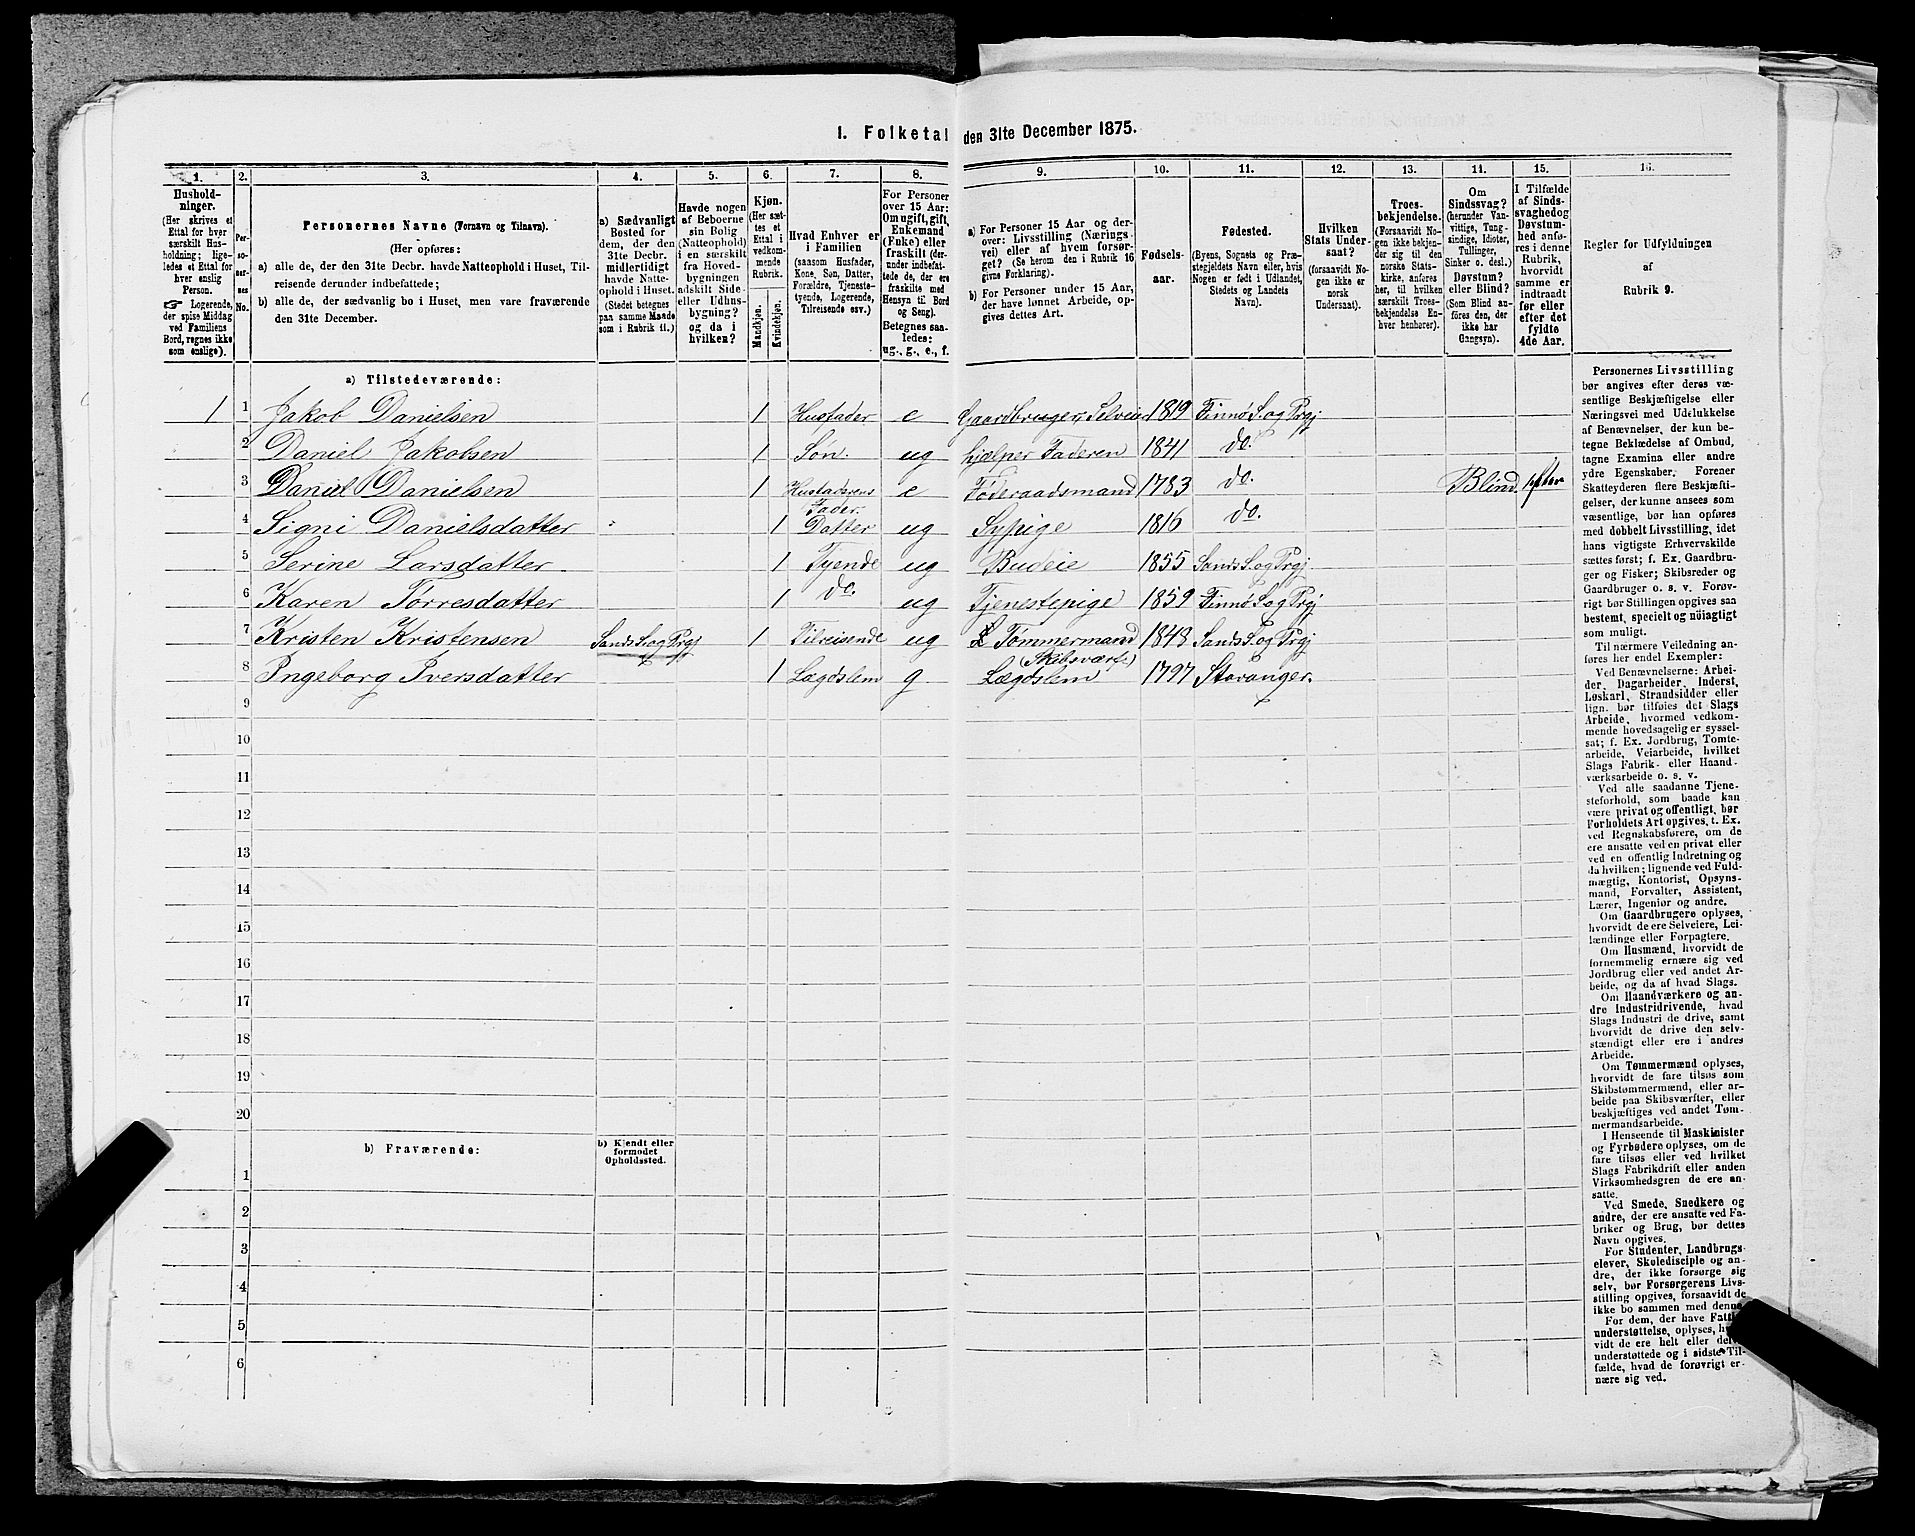 1. Folketal den 31te December 1875.
1. 2. 3. 4. 5. 6. 7. 8. 9. 10. 11. 12. 13. 14. 15. 16.
Hushold-
ninger.
(Her skrives et
Ettal for hver
særskilt Hus-
holdning; lige-
ledes et Ettal for
hver enslig
Person.
☞ Logerende,
der spise Middag
ved Familiens
Bord, regnes ikke
som enslige).
Per-
so-
ner-
nes
No.
Personernes Navne (Fornavn og Tilnavn).
(Her opføres:
a) alle de, der den 31te Decbr. havde Natteophold i Huset, Til-
reisende derunder indbefattede;
b) alle de, der sædvanlig bo i Huset, men vare fraværende
den 31te December.
a) Sædvanligt
Bosted for
dem, der den
31te Decbr.
midlertidigt
havde Natte-
ophold i Huset.
(Stedet betegnes
paa samme Maade
som i Rubrik 11.)
Havde nogen
af Beboerne
sin Bolig
(Natteophold)
i en særskilt
fra Hoved-
bygningen
adskilt Side-
eller Udhus-
bygning?
og da i
hvilken?
Kjøn.
(Her sæt-
tes et
Ettal i
vedkom-
mende
Rubrik.
Mandkjøn.
Kvindekjøn.
Hvad Enhver er
i Familien
(saasom Husfader,
Kone, Søn, Datter,
Forældre, Tjeneste-
tyende, Logerende,
Tilreisende osv.)
For Personer
over 15 Aar:
Om ugift, gift,
Enkemand
(Enke) eller
fraskilt (der-
under indbefat-
tede de, der ere
fraskilte med
Hensyn til Bord
og Seng).
Betegnes saa-
ledes:
ug., g., e., f.
a) For Personer 15 Aar og der-
over: Livsstilling (Nærings-
vei) eller af hvem forsør-
get? (Se herom den i Rubrik 16
givne Forklaring).
b) For Personer under 15 Aar,
der have lønnet Arbeide, op-
gives dettes Art.
Fødsels-
aar.
Fødested.
(Byens, Sognets og Præ-
stegjeldets Navn eller, hvis
Nogen er født i Udlandet,
Stedets og Landets
Navn).
Hvilken
Stats Under-
saat?
(forsaavidt No-
gen ikke er
norsk
Undersaat).
Troes-
bekjendelse.
(Forsaavidt No-
gen ikke bekjen-
der sig til den
norske Stats-
kirke, anføres
her, til hvilken
særskilt Troes-
bekjendelse En-
hver henhører).
Om
Sindssvag?
(herunder Van-
vittige, Tung-
sindige, Idioter,
Tullinger,
Sinker o. desl.)
Døvstum?
eller Blind?
(Som Blind an-
føres den, der
ikke har
Gangsyn).
I Tilfælde
af Sinds-
svaghed og
Døvstum-
hed anfø-
res i denne
Rubrik,
hvorvidt
samme er
indtraadt
før eller
efter det
fyldte
4de Aar.
Regler for Udfyldningen
af
Rubrik 9.
a) Tilstedeværende:
1 1 Jakob Danielsen 1 Husfader e Gaardbruger, Selveier 1819 Finnø S. og Prgj
2 Daniel Jakobsen 1 Søn. ug hjælper Faderen 1841 do.
3 Daniel Danielsen 1 Husfaderens Fader. e Føderaadsmand 1783 do. Blind. efter
4 Signi Danielsdatter 1 Datter ug Sypige 1816 do.
5 Serine Larsdatter 1 Tyende ug Budeie 1855 Sands S. og Prgj
6 Karen Torresdatter 1 do. ug Tjenestepige 1859 Finnø S. og Prgj
7 Kristen Kristensen Sands S. og Prgj 1 Tilreisende ug Tømmermand 1848 Sands S. og Prgj
(Skibsværft)
8 Ingeborg Iversdatter 1 Lægdslem g Lægdslem 1797 Stavanger.
9
10
11
12
13
14
15
16
17
18
19
20
b) Fraværende:
b) Kjendt eller
formodet
Opholdssted.
1
2
3
4
5
6
Personernes Livsstilling
bør angives efter deres væ-
sentlige Beskjæftigelse eller
Næringsvei med Udelukkelse
af Benævnelser, der kun be-
tegne Beklædelse af Ombud,
tagne Examina eller andre
ydre Egenskaber. Forener
Skatteyderen flere Beskjæfti-
gelser, der kunne ansees som
væsentlige, bør han opføres
med dobbelt Livsstilling, idet
hans vigtigste Erhvervskilde
sættes først; f. Ex. Gaardbru-
ger og Fisker; Skibsreder og
Gaardbruger o. s. v. Forøv-
rigt bør Stillingen opgives saa
bestemt, specielt og nøiagtigt
som muligt.
Til nærmere Veiledning an-
føres her endel Exempler:
Ved Benævnelserne: Arbei-
der, Dagarbeider, Inderst,
Løskarl, Strandsidder eller
lign. bør tilføies det Slags
Arbeide, hvormed vedkom-
mende hovedsagelig er syssel-
sat; f. Ex. Jordbrug, Tomte-
arbeide, Veiarbeide, hvilket
Slags Fabrik- eller Haand-
værksarbeide o. s. v.
Ved alle saadanne Tjene-
steforhold, som baade kan
være privat og offentligt, bør
Forholdets Art opgives, t. Ex.
ved Regnskabsførere, om de
ere ansatte ved en privat eller
ved en offentlig Indretning og
da hvilken; lignende ved Fuld-
mægtig, Kontorist, Opsyns-
mand, Forvalter, Assistent,
Lærer, Ingeniør og andre.
Om Gaardbrugere oplyses,
hvorvidt de ere Selveiere, Lei-
lændinge eller Forpagtere.
Om Husmænd, hvorvidt de
fornemmelig ernære sig ved
Jordbrug eller ved andet Ar-
beide, og da af hvad Slags.
Om Haandværkere og an-
dre Industridrivende, hvad
Slags Industri de drive, samt
hvorvidt de drive den selv-
stændigt eller ere i andres
Arbeide.
Om Tømmermænd oplyses,
hvorvidt de fare tilsøs som
Skibstømmermænd, eller ar-
beide paa Skibsværfter, eller
beskjæftiges ved andet Tøm-
mermandsarbeide.
I Henseende til Maskinister
og Fyrbødere oplyses, om de
fare tilsøs eller ved hvilket
Slags Fabrikdrift eller anden
Virksomhedsgren de ere an-
satte.
Ved Smede, Snedkere og
andre, der ere ansatte ved Fa-
briker og Brug, bør dettes
Navn opgives.
For Studenter, Landbrugs-
elever, Skoledisciple og an-
dre, der ikke forsørge sig
selv, bør Forsørgerens Livs-
stilling opgives, forsaavidt de
ikke bo sammen med denne.
For dem, der have Fattig-
understøttelse, oplyses, hvor-
vidt de ere helt eller delvis
understøttede og i sidste Til-
fælde, hvad de forøvrigt er-
nære sig ved.